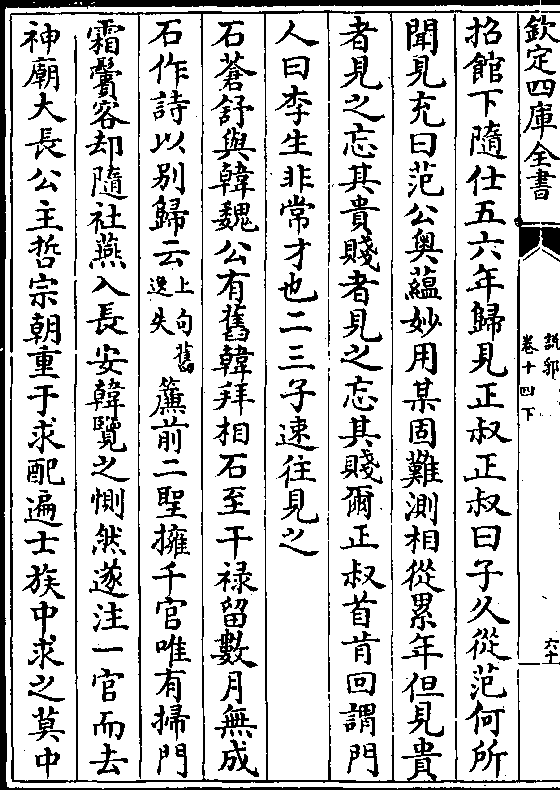 欽定四庫全書
說郛
卷十四下
六十
招館下隨仕五六年歸見正叔正叔曰子久從范何所
聞見充曰范公奥蘊妙用某固難測相從累年但見貴
者見之忘其貴賤者見之忘其賤爾正叔首肯回謂門
人曰李生非常才也二三子速往見之
石蒼舒與韓魏公有舊韓拜相石至干禄留數月無成
石作詩以别歸云上句舊逸失簾前二聖擁千官唯有掃門
霜鬢客却隨社燕入長安韓覽之惻然遂注一官而去
神廟大長公主哲宗朝重于求配遍士族中求之莫中